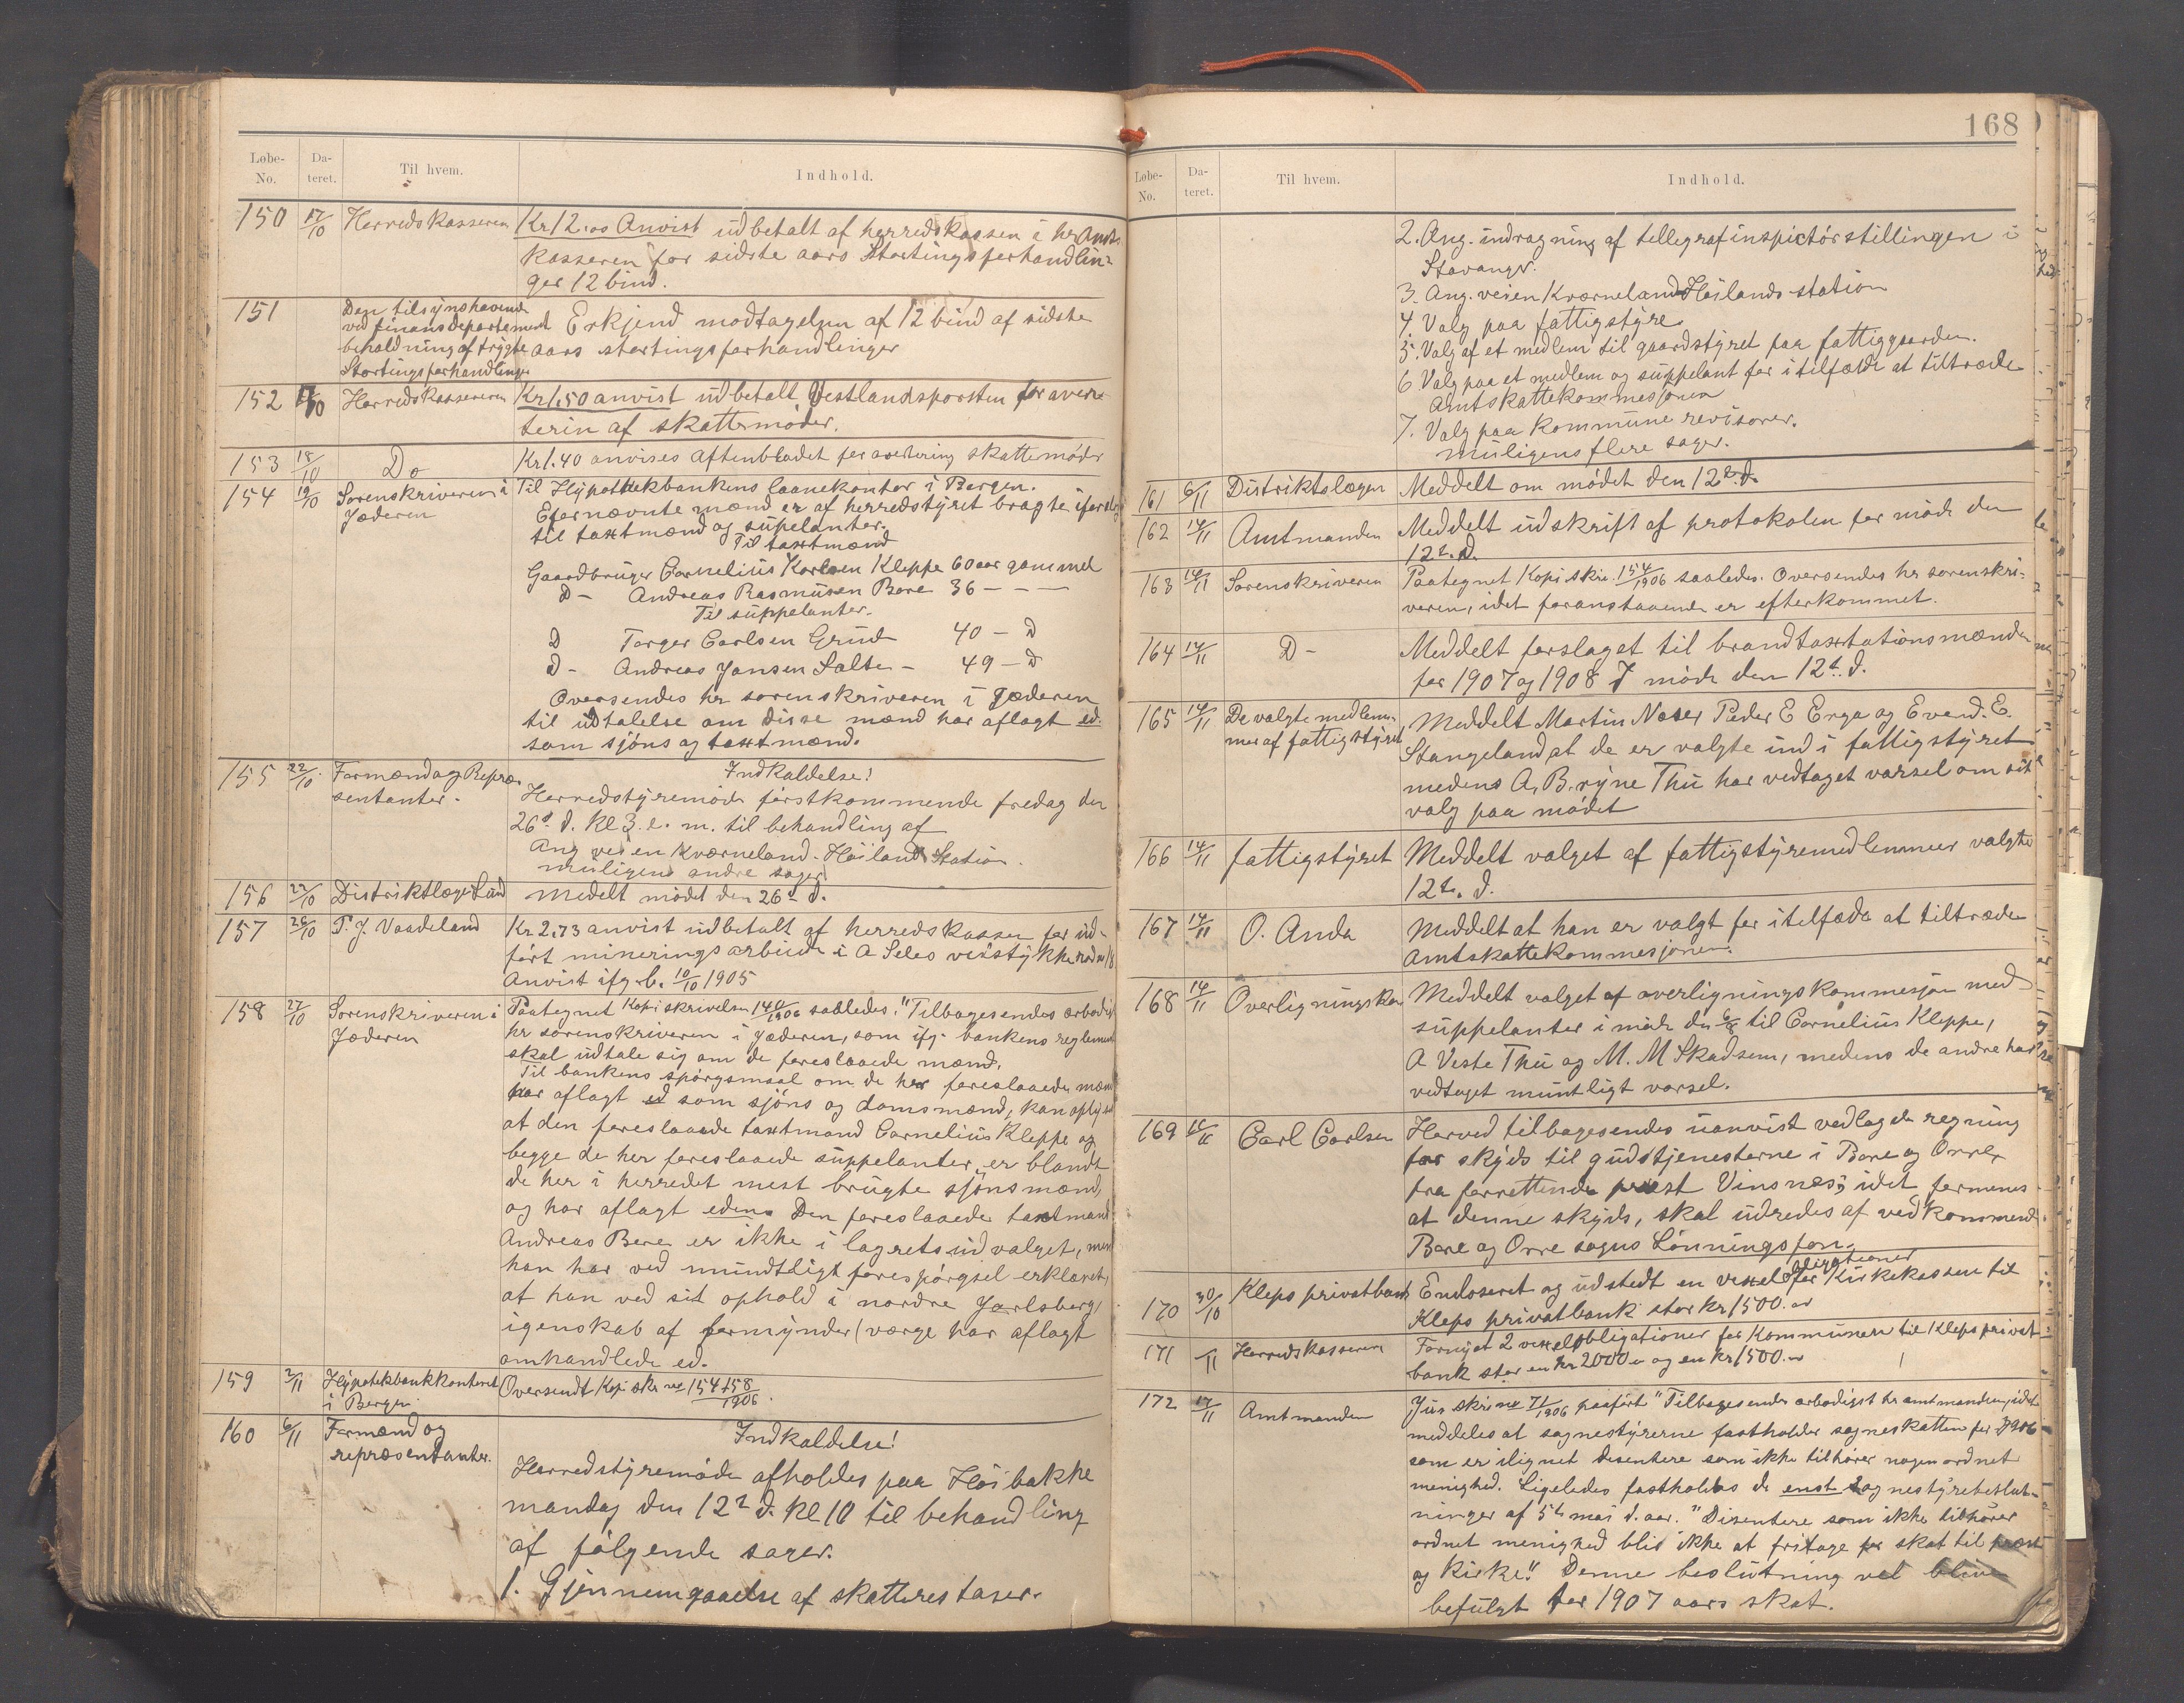 Løbe-No. Dateret. Til hvem. Indhold.
150 17/10 Herredskasseren Kr 12.00 Anvist udbetalt af herredskassen i hr Amts
kasseren for sidste aars Stortingsforhandlin-
ger 12 bind.
151 Den tilsynshavende
ved finansdepartement Erkjend modtagelsen af 12 bind af sidste
beholdning af trygte aars stortingsforhandlinger
Stortingsforhandlinger
152 17/10 Herredskasseren Kr 1.50 anvist udbetalt Vestlandsposten for aver-
terin af skattemøder.
153 18/10 Do Kr 1.40 anvises Aftenbladet for avertering skattemøde
154 19/10 Sorenskriveren i Til Hypothekbankens laanekontor i Bergen.
Jæderen Efternævnte mænd er af herredstyret bragte i forslag
til taxtmænd og supelanter.
Til taxtmænd
Gaardbruger Cornelius Karlsen Kleppe 60 aar gammel
D - Andreas Rasmusen Bore 36 - - -
Til suppelanter.
D Torger Carlsen Grude 40 - D
D - Andreas Jansen Salte - 49 - D
Oversendes hr sorenskriveren i Jæderen
til udtalelse om disse mænd har aflagt ed.
som sjöns og taxtmænd.
155 22/10 Formænd og Repræ- Indkaldelse!
sentanter. Herredstyremøde førstkommende fredag den
26d d. Kl 3. e. m. til behandling af
Ang veien Kværneland - Høiland Station.
muligens andre sager
156 22/10 Distriktlæge Lund Medelt mødet den 26d d.
157 26/10 T. J. Vasdeland Kr 2.73 anvist udbetalt af herredskassen for ud-
ført mineringsarbeide i A Seles veistykke rode 18
Anvist ifg. b. 10/10 1905
158 27/10 Sorenskriveren i Paategnet Kopi skrivelse 140/1906 saaledes: "Tilbagesendes ærbødigst
Jæderen hr sorenskriveren i Jæderen, som ifg. bankens reglement
skal udtale sig om de foreslaaede mænd.
Til bankens spørgsmaal om de her foreslaaede mænd
har aflagt ed som sjöns og domsmænd, kan oplyses
at den foreslaaede taxtmand Cornelius Kleppe og
begge de her foreslaaede suppelanter er blandt
de her i herredet mest brugte sjønsmænd,
og har aflagt eden. Den foreslaaede taxtmand
Andreas Bore er ikke i lagretsudvalget, men
han har ved mundtligt forespørgsel erklæret,
at han ved sit ophold i nordre Jarlsberg,
igenskab af formynder (værge har aflagt
omhandlede ed.
159 2/11 Hypotekbankkontoret Oversendt Kopi skr no 154 + 158/1906.
i Bergen
160 6/11 Formænd og Indkaldelse!
repræsentanter. Herredstyremøde afholdes paa Höibakke
mandag den 12te d. Kl 10 til behandling
af følgende sager.
1. Gjennemgaaelse af skatterestaser.
168
Løbe-No. Dateret. Til hvem. Indhold.
2. Ang. indragning af tellegrafinspictörstillingen i
Stavanger.
3. Ang. veien Kværneland Høilands station
4. Valg paa fattigstyre
5. Valg af et medlem til gaardstyret paa fattiggaarden.
6 Valg paa et medlem og suppelant for i tilfælde at tiltræde
Amtskattekommesjonen
7. Valg paa Kommune revisorer.
muligens flere sager.
161 6/11 Distriktslægen Meddelt om mødet den 12te d.
162 14/11 Amtmanden Meddelt udskrift af protokolen for møde den
12te. d.
163 14/11 Sorenskriveren Paategnet Kopi skr. 154/1906 saaledes. Oversendes hr sorenskri-
veren, idet foranstaaende er efterkommet.
164 14/11 D - Meddelt forslaget til brandtaxtationsmænden
for 1907 og 1908 I møde den 12t. d.
165 14/11 De valgte medlem- Meddelt Martin Næser Peder E Erga og Evend. E.
mer af fattigstyret Stangeland at de er valgte ind i fattigstyret
medens A. B. ryne Thu har vedtaget varsel om sit
valg paa mødet
166 14/11 fattigstyret Meddelt valget af fattigstyremedlemmer valgte
12te. d.
167 14/11 O. Anda Meddelt at han er valgt for i tilfæde at tiltræde
Amtskattekommesjonen.
168 14/11 Overligningskom Meddelt valget af overligningskommesjon med
suppelanter i møde den 6/8 til Cornelius Kleppe,
A Veste Thu og M. M Skadsem, medens de andre har
vedtaget muntligt varsel.
169 15/11 Carl Carlsen Herved tilbagesendes uanvist vedlagde regning
for skyds til gudstjenesterne i Bore og Orre
fra forrettende prest Vinsnes; idet formenes
at denne skyds, skal udredes af vedkommende
Bore og Orre sogns Lønningsfon.
170 30/10 Kleps privatbank Endoseret og udstedt en vexelobligationer for Kirkekassen til
Kleps privatbank stor Kr 1500.00
171 /11 Herredskasseren Fornyet 2 vexelobligationer for Kommunen til Kleps privat
bank stor en kr 2000.00 og en kr 1500.00
172 17/11 Amtmanden Jur skr no 71/1906 paaført "Tilbagesendes ærbødigst hr amtmanden, idet
meddeles at sognestyrerne fastholder sogneskatten for 1906
som er ilignet disentere som ikke tilhører nogen ordnet
menighed. Ligeledes fastholdes de enst sognestyrebeslut-
ninger af 5te mai d. aar. "Disentere som ikke tilhører
ordnet menighed blir ikke at fritage for skat til præst
og kirke". Denne beslutning vil blive
befulgt for 1907 aars skat.